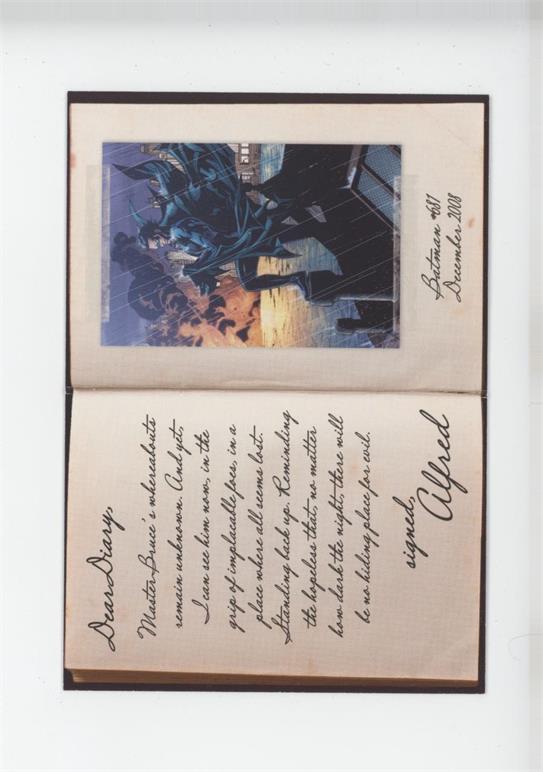 Dear Diary,
Master Bruce's whereabouts
remain unknown. And yet,
I can see him now, in the
grip of implacable foes, in a
place where all seems lost.
Standing back up. Reminding
the hopeless that, no matter
how dark the night, there will
be no hiding place for evil.
signed,
Alfred
Batman #681
December 2008